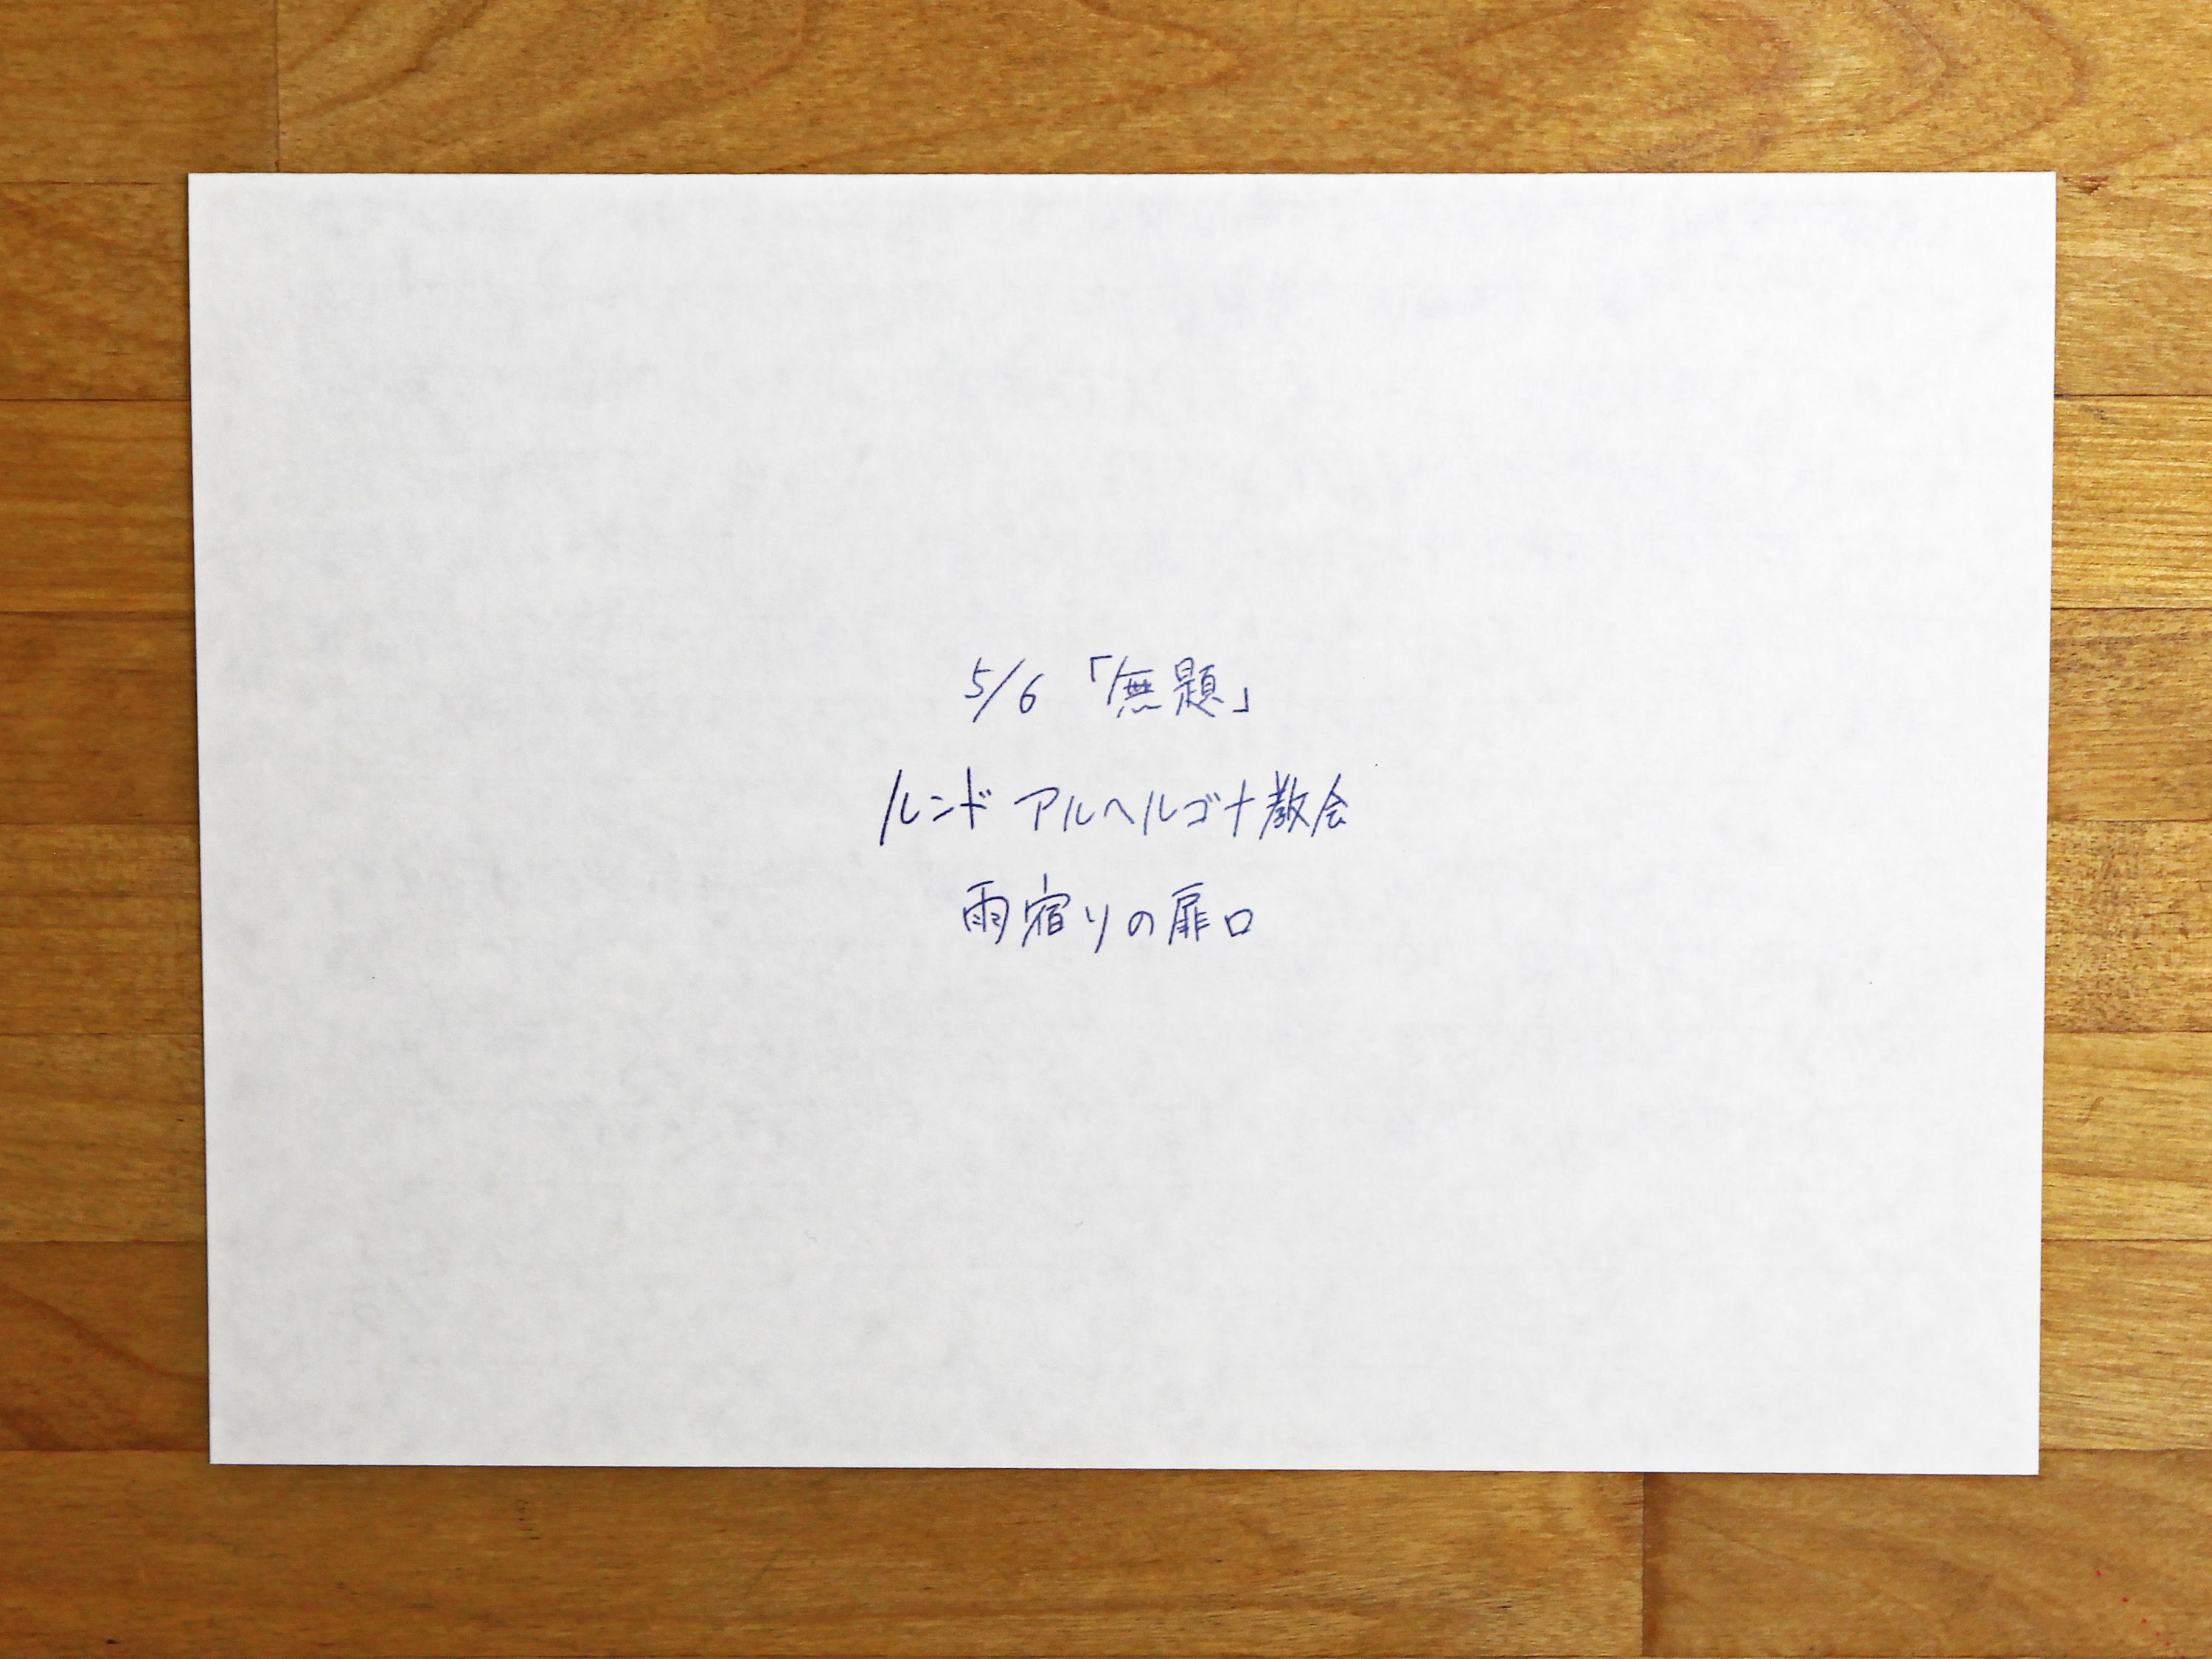 5/6 「無題」
ルンド アルヘルゴナ教会
雨宿りの扉口